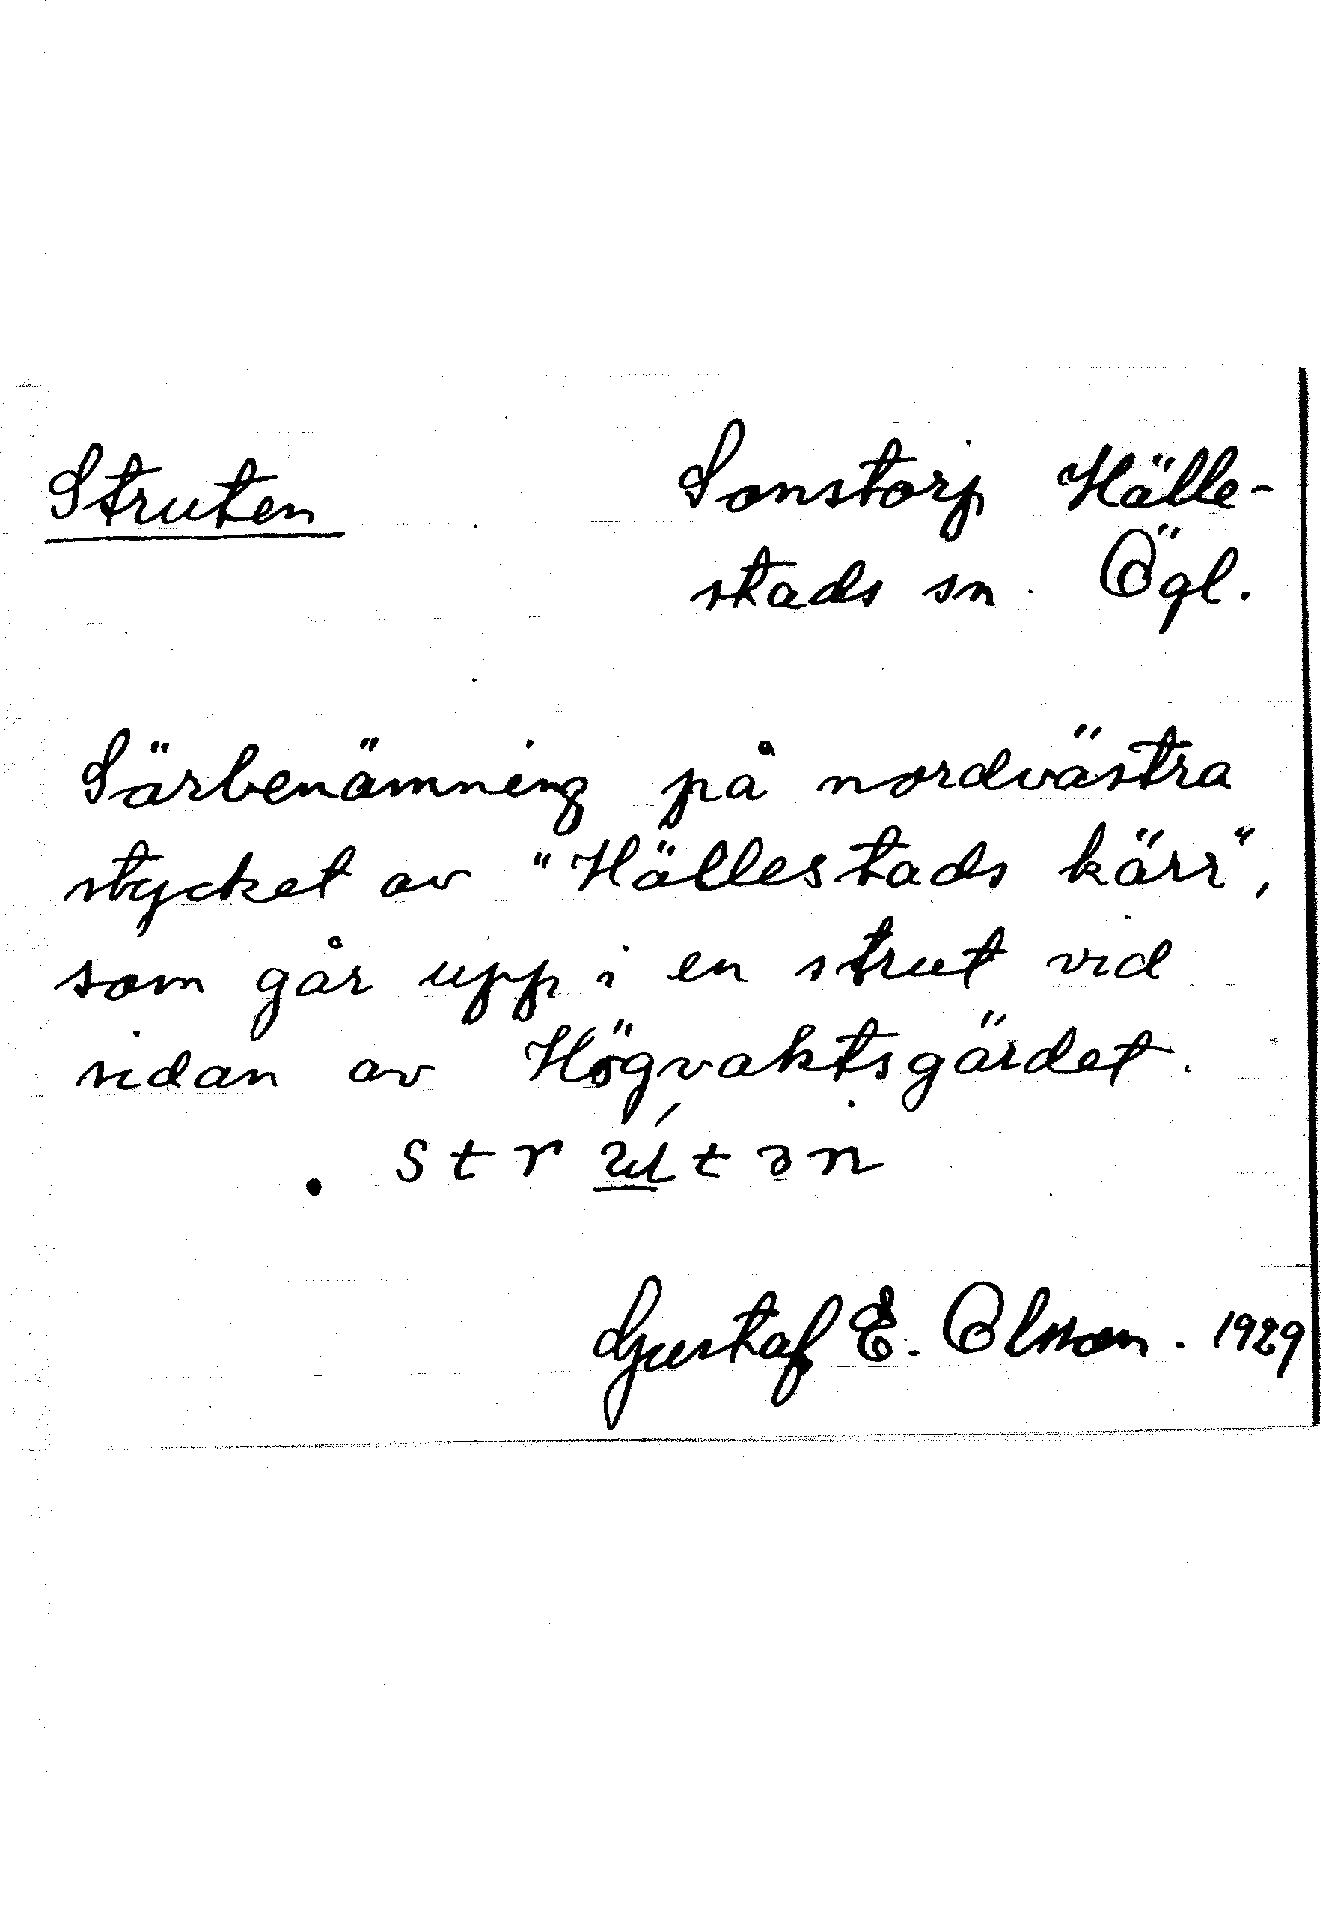 Struten
Sonstorp Hälle-
stads sn. Ögl.
Särbenämning på nordvästra
stycket av "Hällestads kärr",
som går upp i en strut vid
sidan av Högvaktsgärdet.
Gustaf E. Olsson. 1929